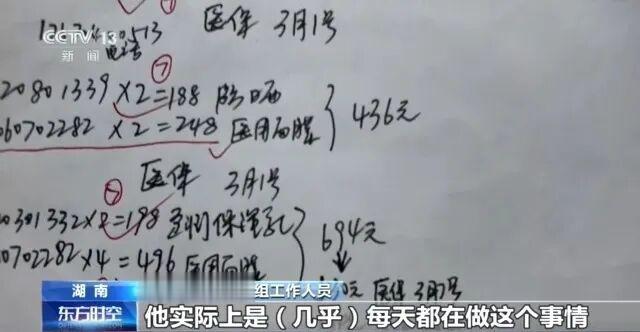 CCTV 13
新闻
513
医保 3月1号
电话
⑦
20801339 ×2=188 防晒
060702282 ×2=248 医用面膜
436元
医保 3月1号
0301332×2=198
0702282×4=496 医用面膜
694元
医保 3月1号
湖南
组工作人员
东方时空
他实际上是（几乎）每天都在做这个事情